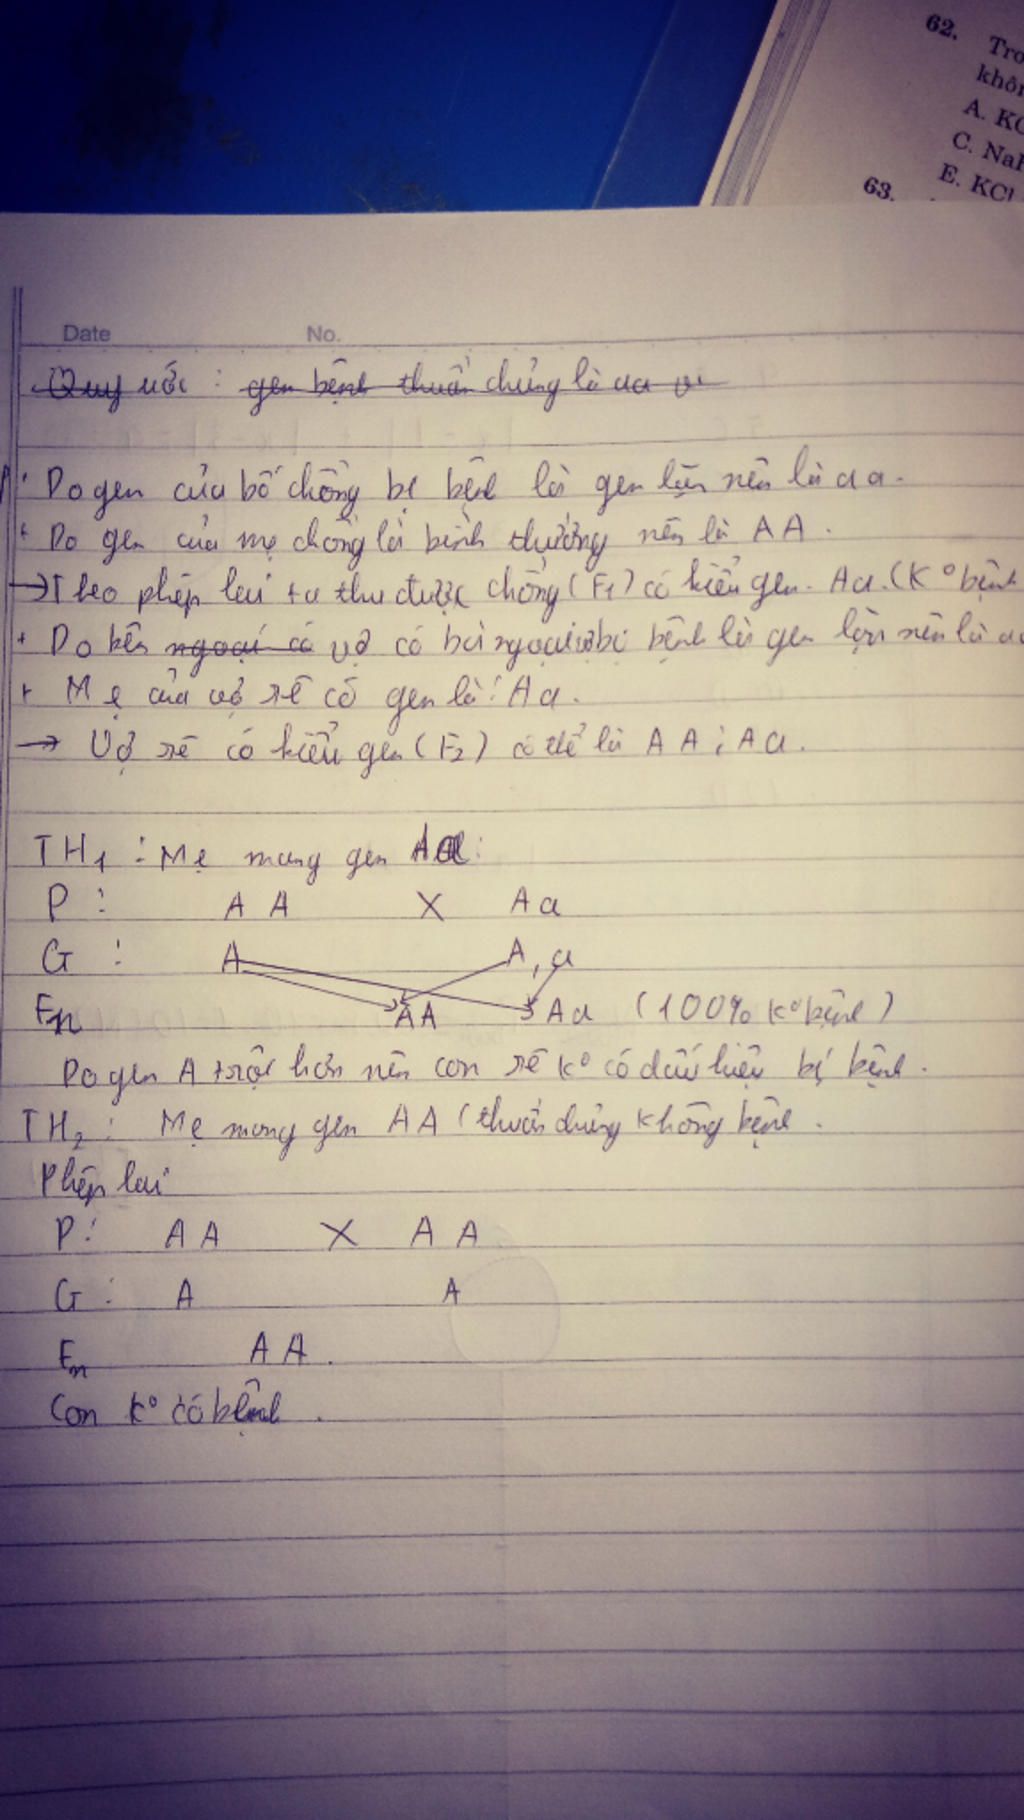 62. Tro
khôn
A. KC
C. Nal
E. KCl
63.
Date No.
Quy ước : gen bệnh thuần chủng là aa
Do gen của bố chồng bị bệnh là gen lặn nên là aa.
+ Do gen của mẹ chồng là bình thường nên là AA.
→ Theo phép lai ta thu được chồng (F1) có kiểu gen. Aa. (K° bệnh
+ Do bên ngoại có vợ có bà ngoại bị bệnh là gen lặn nên là aa
+ Mẹ của vợ sẽ có gen là: Aa.
→ Vợ sẽ có kiểu gen (F2) có thể là AA; Aa.
TH1 : Mẹ mang gen Aa:
P : AA X Aa
G : A A, a
Fn AA Aa (100% k° bệnh)
Do gen A trội hơn nên con sẽ k° có dấu hiệu bị bệnh.
TH2 : Mẹ mang gen AA (thuần chủng không bệnh.
Phép lai
P: AA X AA
G: A A
Fn AA.
Con k° có bệnh.